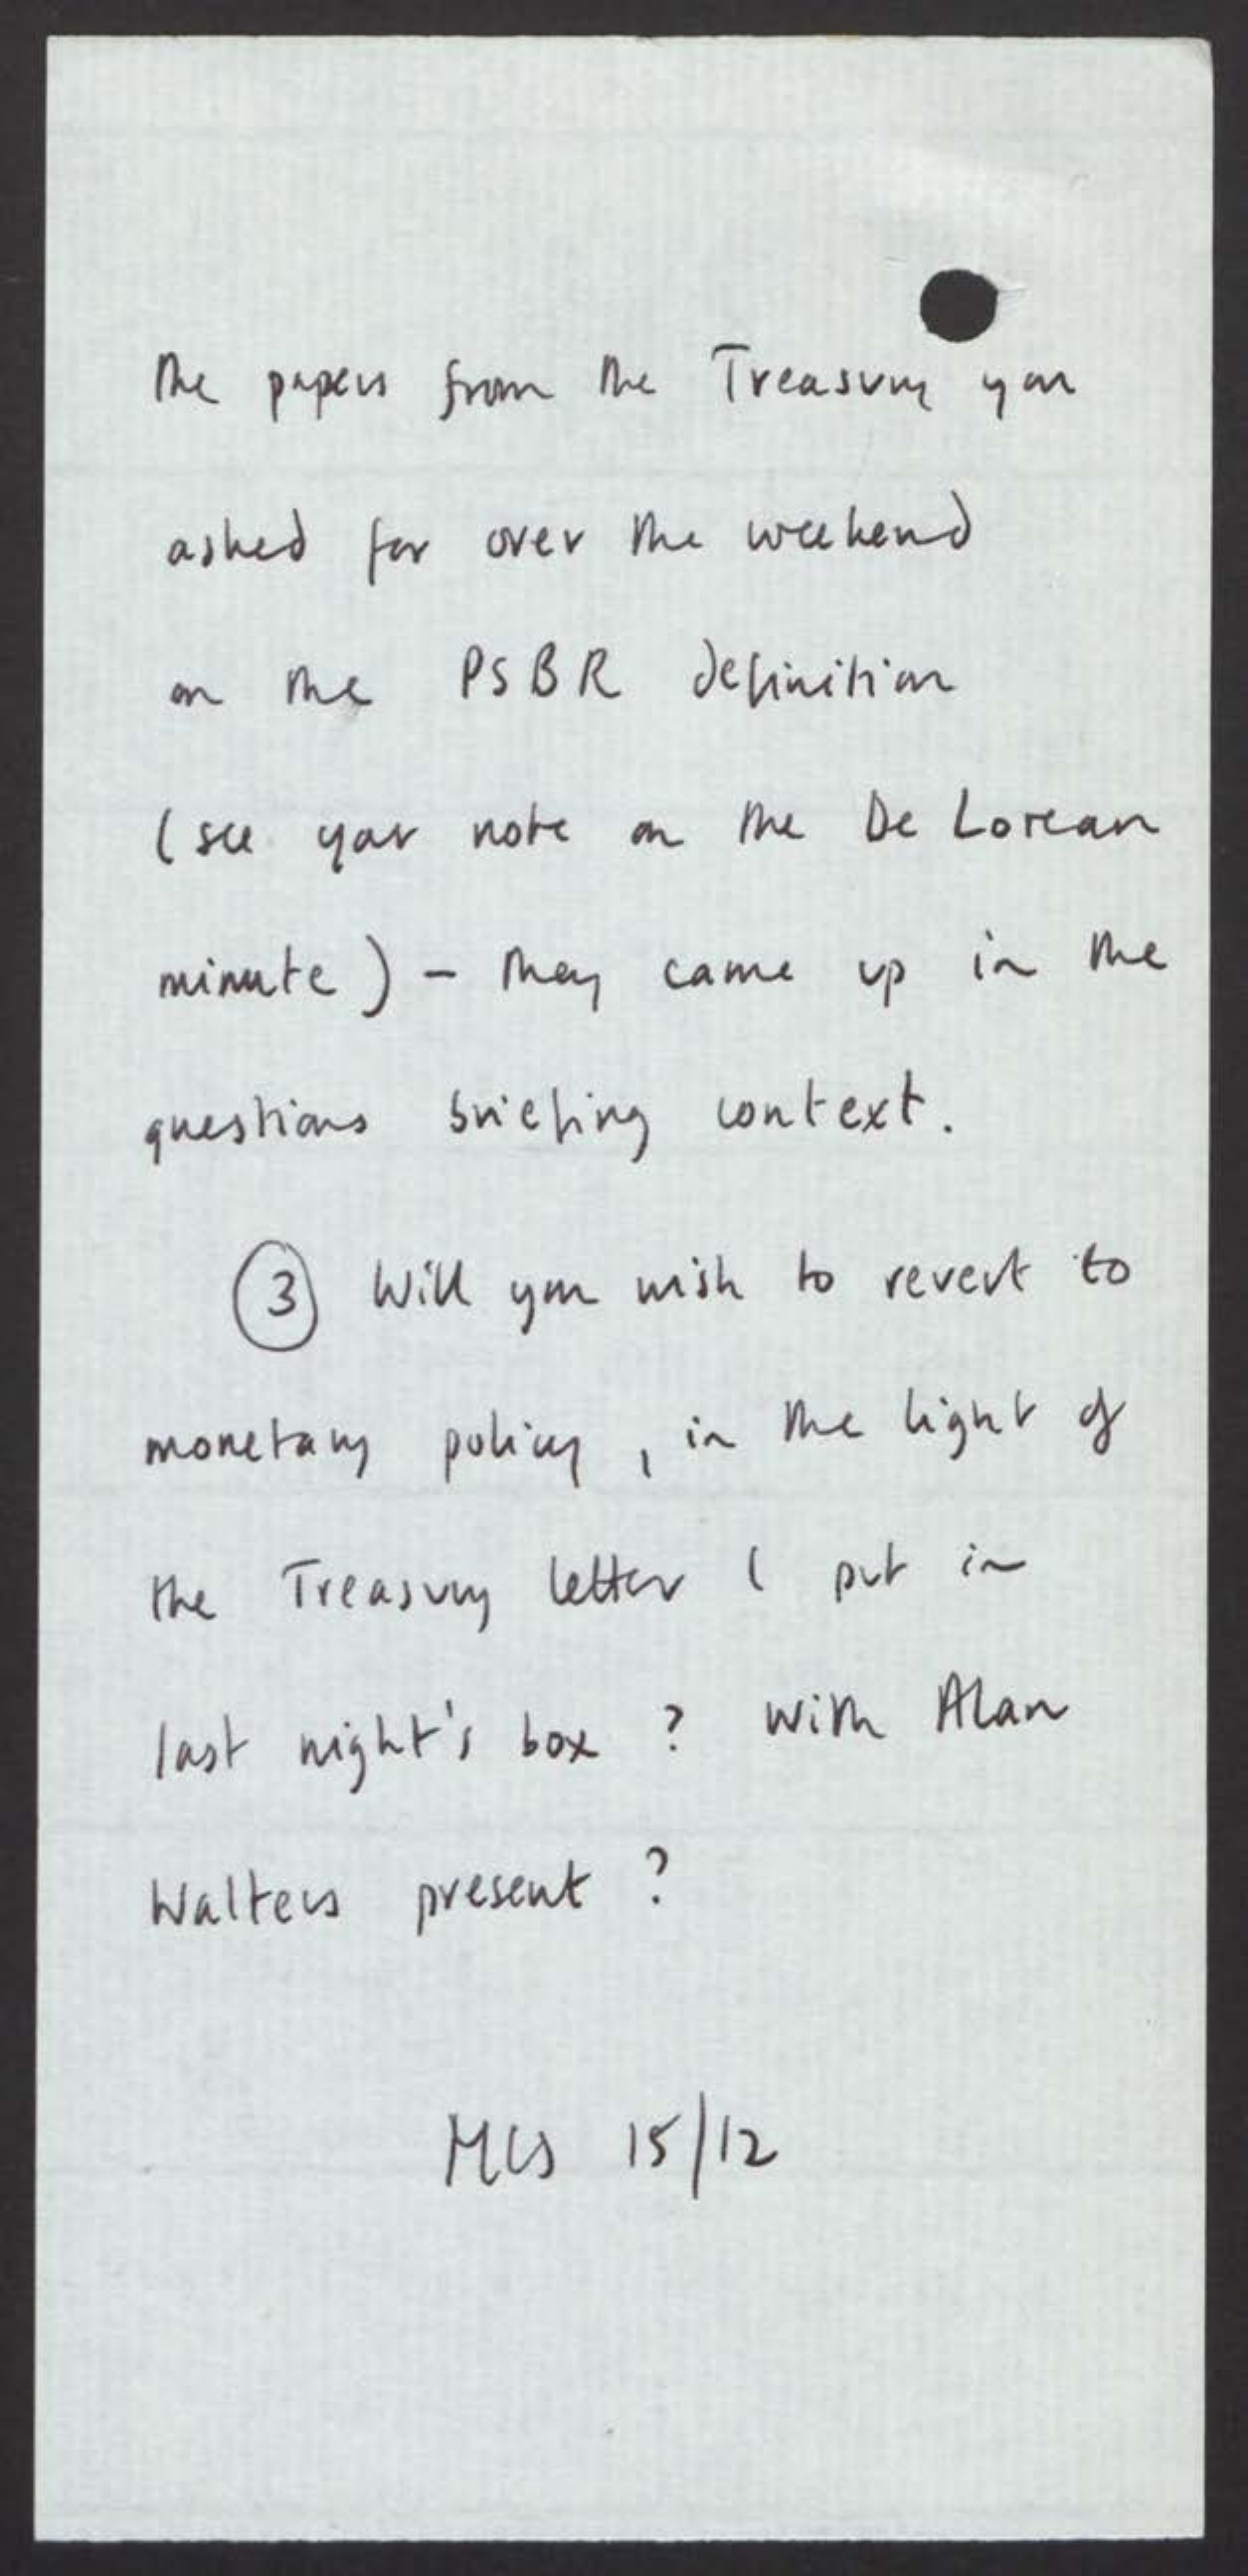 the papers from the Treasury you
asked for over the weekend
on the PSBR definition
(see your note on the De Lorean
minute) - they came up in the
questions briefing context.
③ Will you wish to revert to
monetary policy, in the light of
the Treasury letter I put in
last night's box? With Alan
Walters present?
MCS 15/12